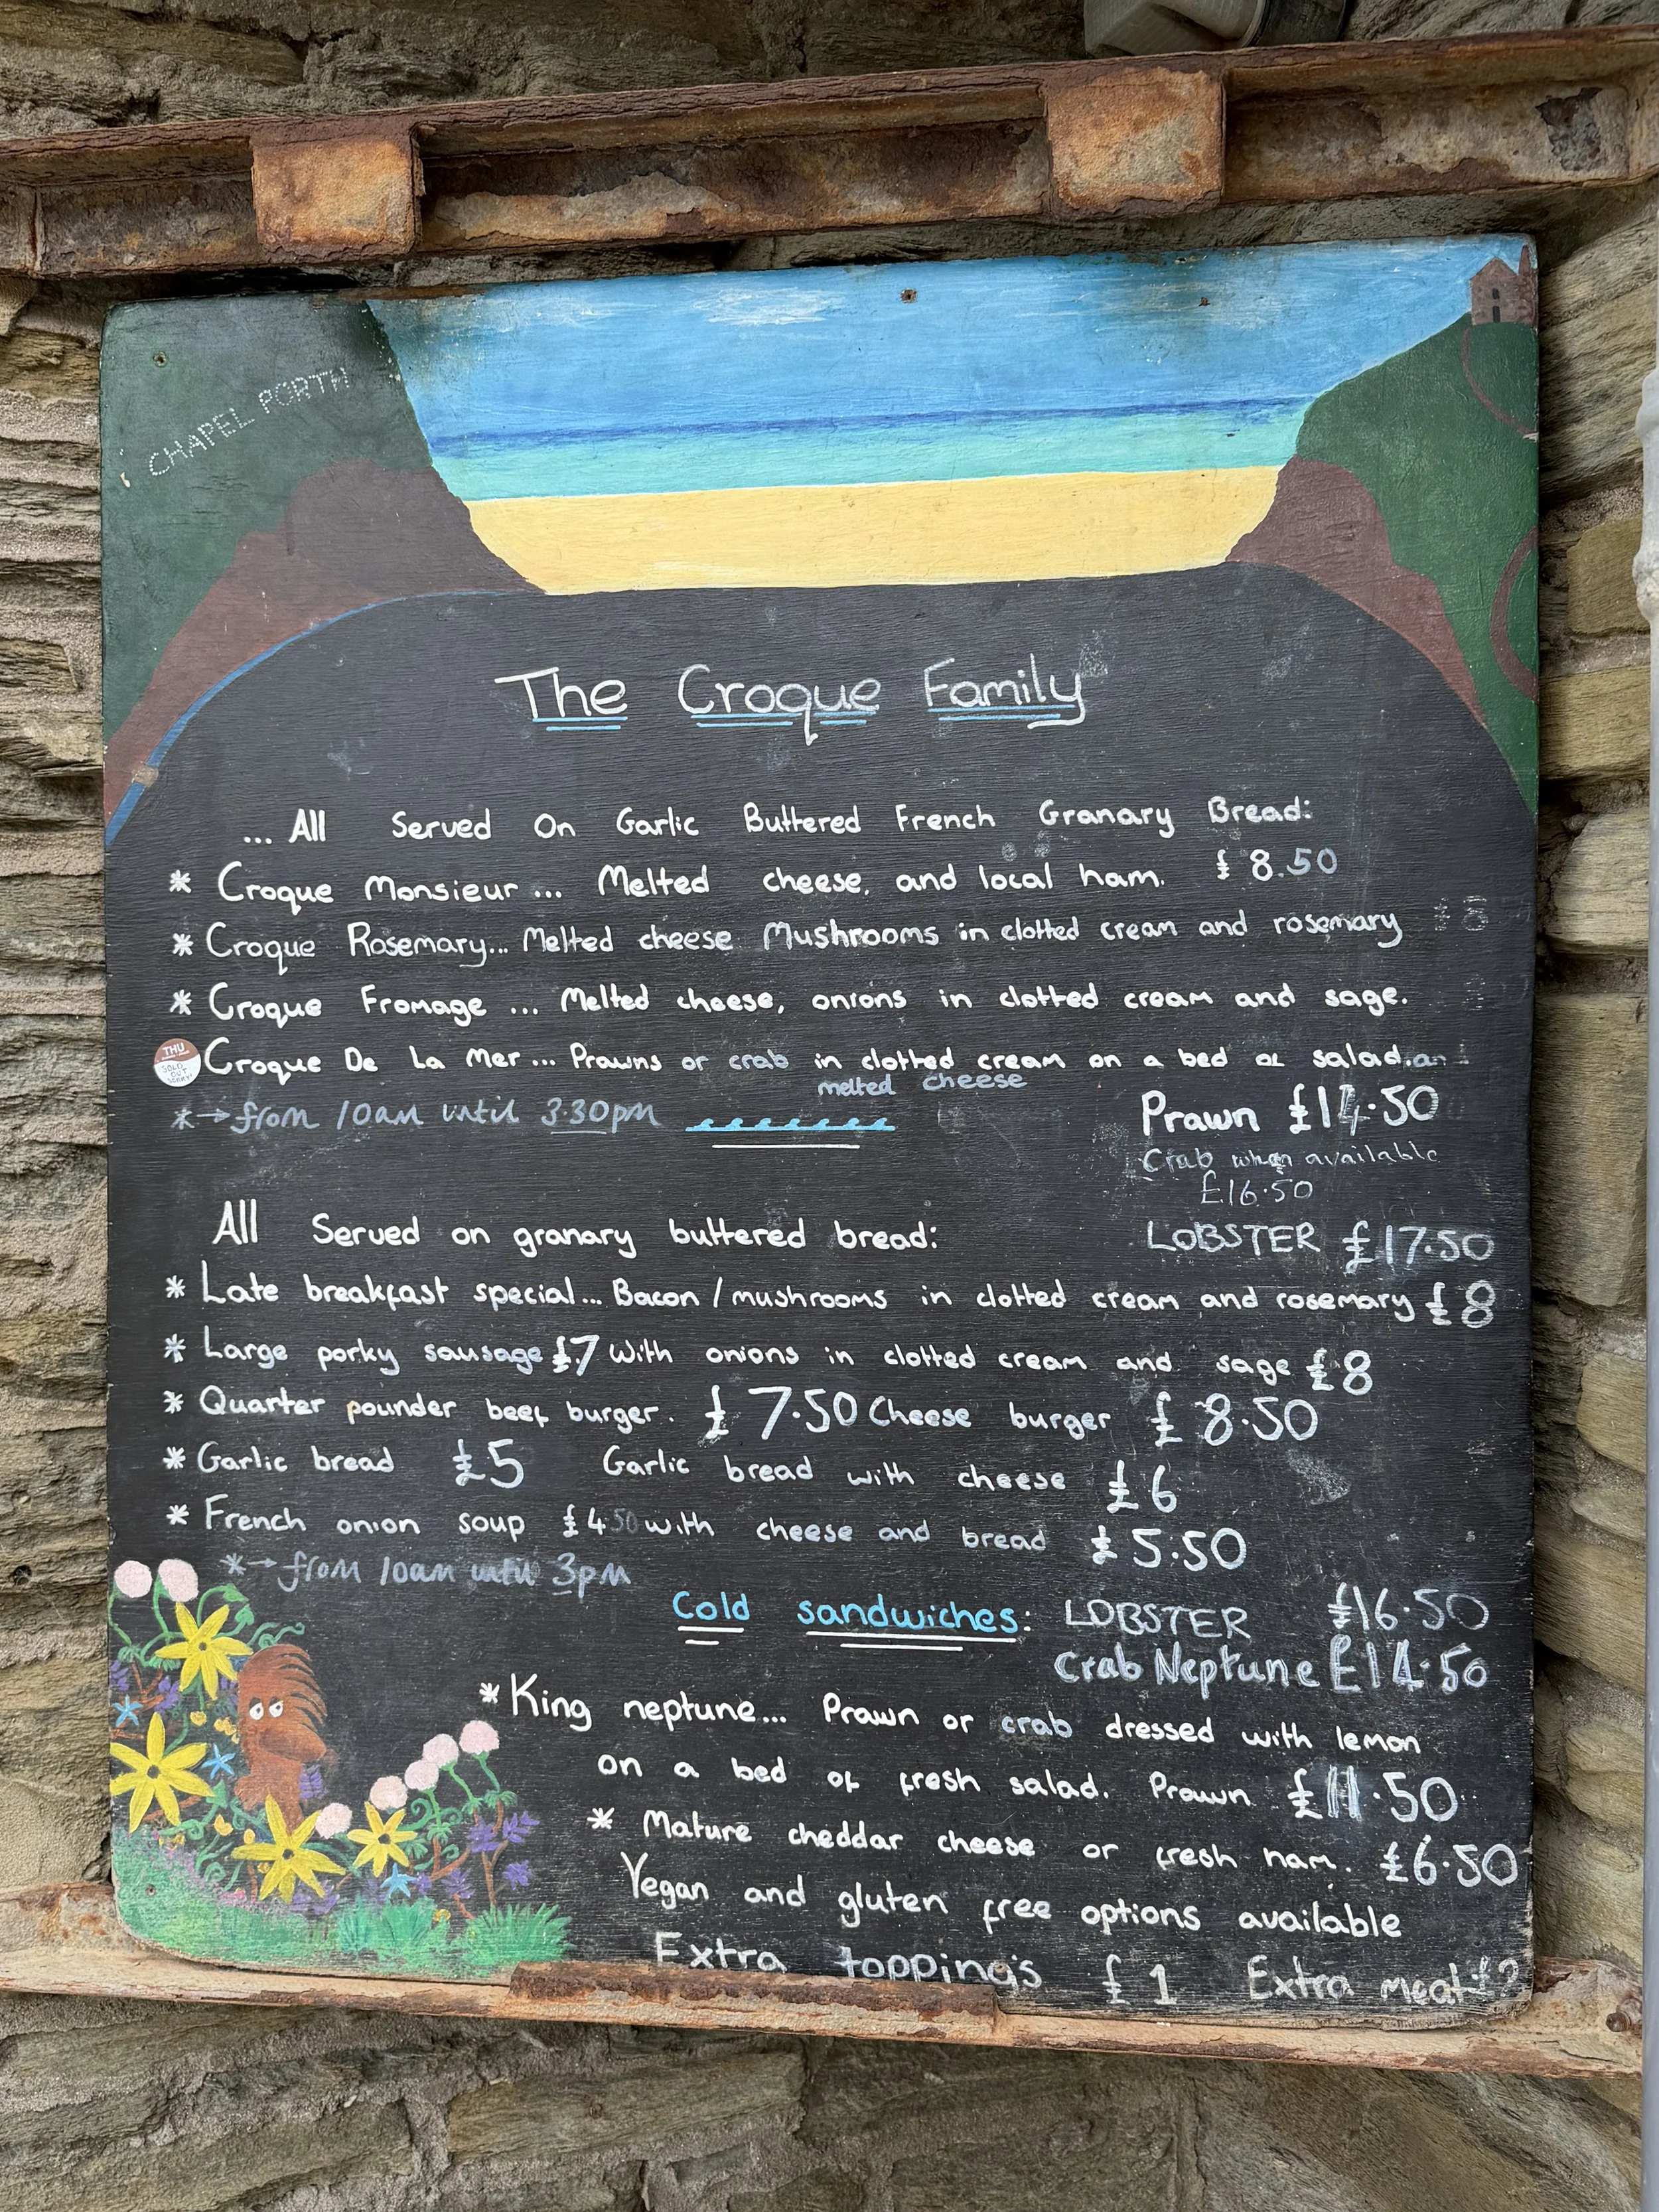 CHAPEL PORTH
The Croque Family
... All Served On Garlic Buttered French Granary Bread:
* Croque Monsieur ... Melted cheese, and local ham. £ 8.50
* Croque Rosemary... Melted cheese Mushrooms in clotted cream and rosemary
* Croque Fromage ... Melted cheese, onions in clotted cream and sage.
THU
SOLD
OUT
SORRY!
Croque De La Mer ... Prawns or crab in clotted cream on a bed of salad.an
melted cheese
*→ from 10am until 3.30pm
Prawn £14.50
Crab when available
£16.50
LOBSTER £17.50
All Served on granary buttered bread:
* Late breakfast special... Bacon / mushrooms in clotted cream and rosemary £8
* Large porky sausage £7 with onions in clotted cream and sage £8
* Quarter pounder beef burger. £ 7.50 Cheese burger £ 8.50
* Garlic bread £5 Garlic bread with cheese £6
* French onion soup £4 50 with cheese and bread £5.50
*→ from 10am until 3pm
Cold sandwiches: LOBSTER £16.50
Crab Neptune £14.50
* King neptune... Prawn or crab dressed with lemon
on a bed of fresh salad. Prawn £11.50
* Mature cheddar cheese or fresh ham. £6.50
Vegan and gluten free options available
Extra toppings £1 Extra meat £2